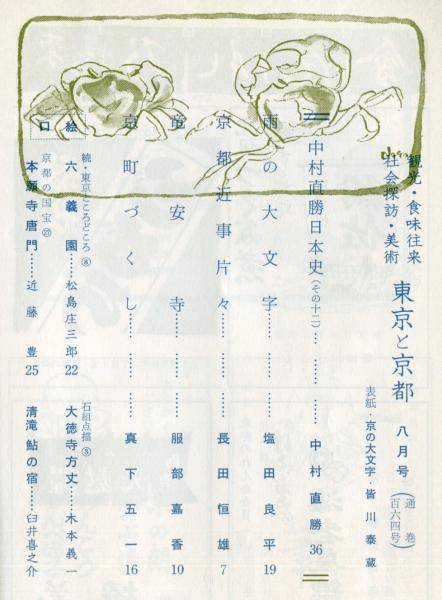 観光・食味往来
社会探訪・美術
東京と京都
八月号
（通巻百六四号）
表紙・京の大文字・皆川泰蔵
中村直勝日本史（その十二）………………中村直勝36
雨の大文字………………塩田良平19
京都近事片々………………長田恒雄7
竜安寺………………服部嘉香10
京町づくし………………真下五一16
口絵
続・東京ところどころ⑧
六義園……松島庄三郎22
石組点描③
大徳寺方丈……木本義一
京都の国宝㉗
本願寺唐門……近藤豊25
清滝鮎の宿……臼井喜之介